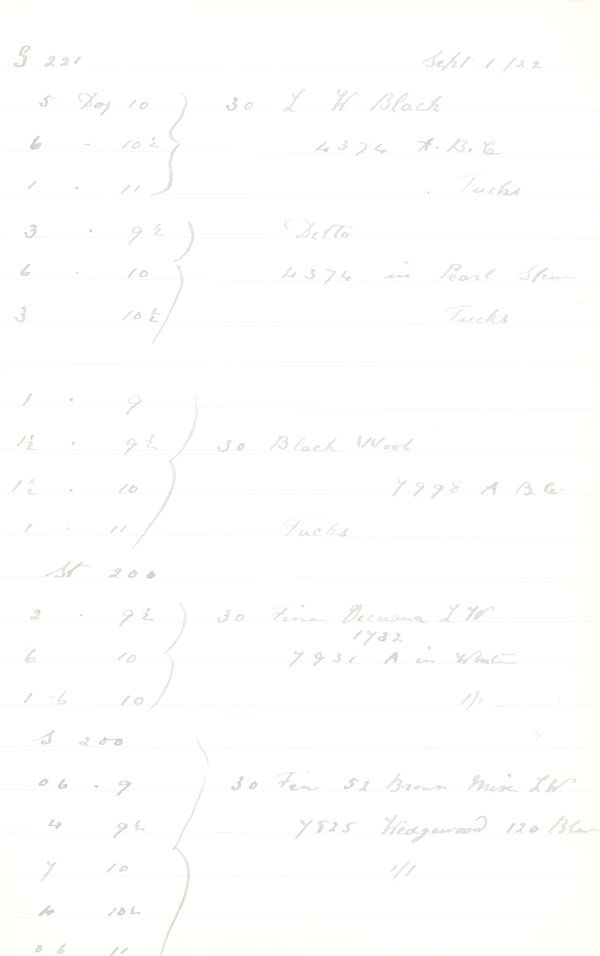 S 221 Sept 1/22
5 Doz 10 30 L W Black
6 - 10½ 4374 A.B.C
1 . 11 . Tucks
3 . 9½ Ditto
6 . 10 4374 in Pearl
3 10½ Tucks
1 . 9
1½ . 9½ 30 Black Wool
1½ . 10 7998 A B.C.
1 . 11 Tucks
St 200
2 . 9½ 30 Fine Vicuana L W
1732
6 10 7931 A in White
1-6 10 1/1
S 200
06 . 9 30 Fine 52 Brown Mix LW
4 9½ 7825 Wedgewood 120 Blue
7 10 1/1
4 10½
06 11